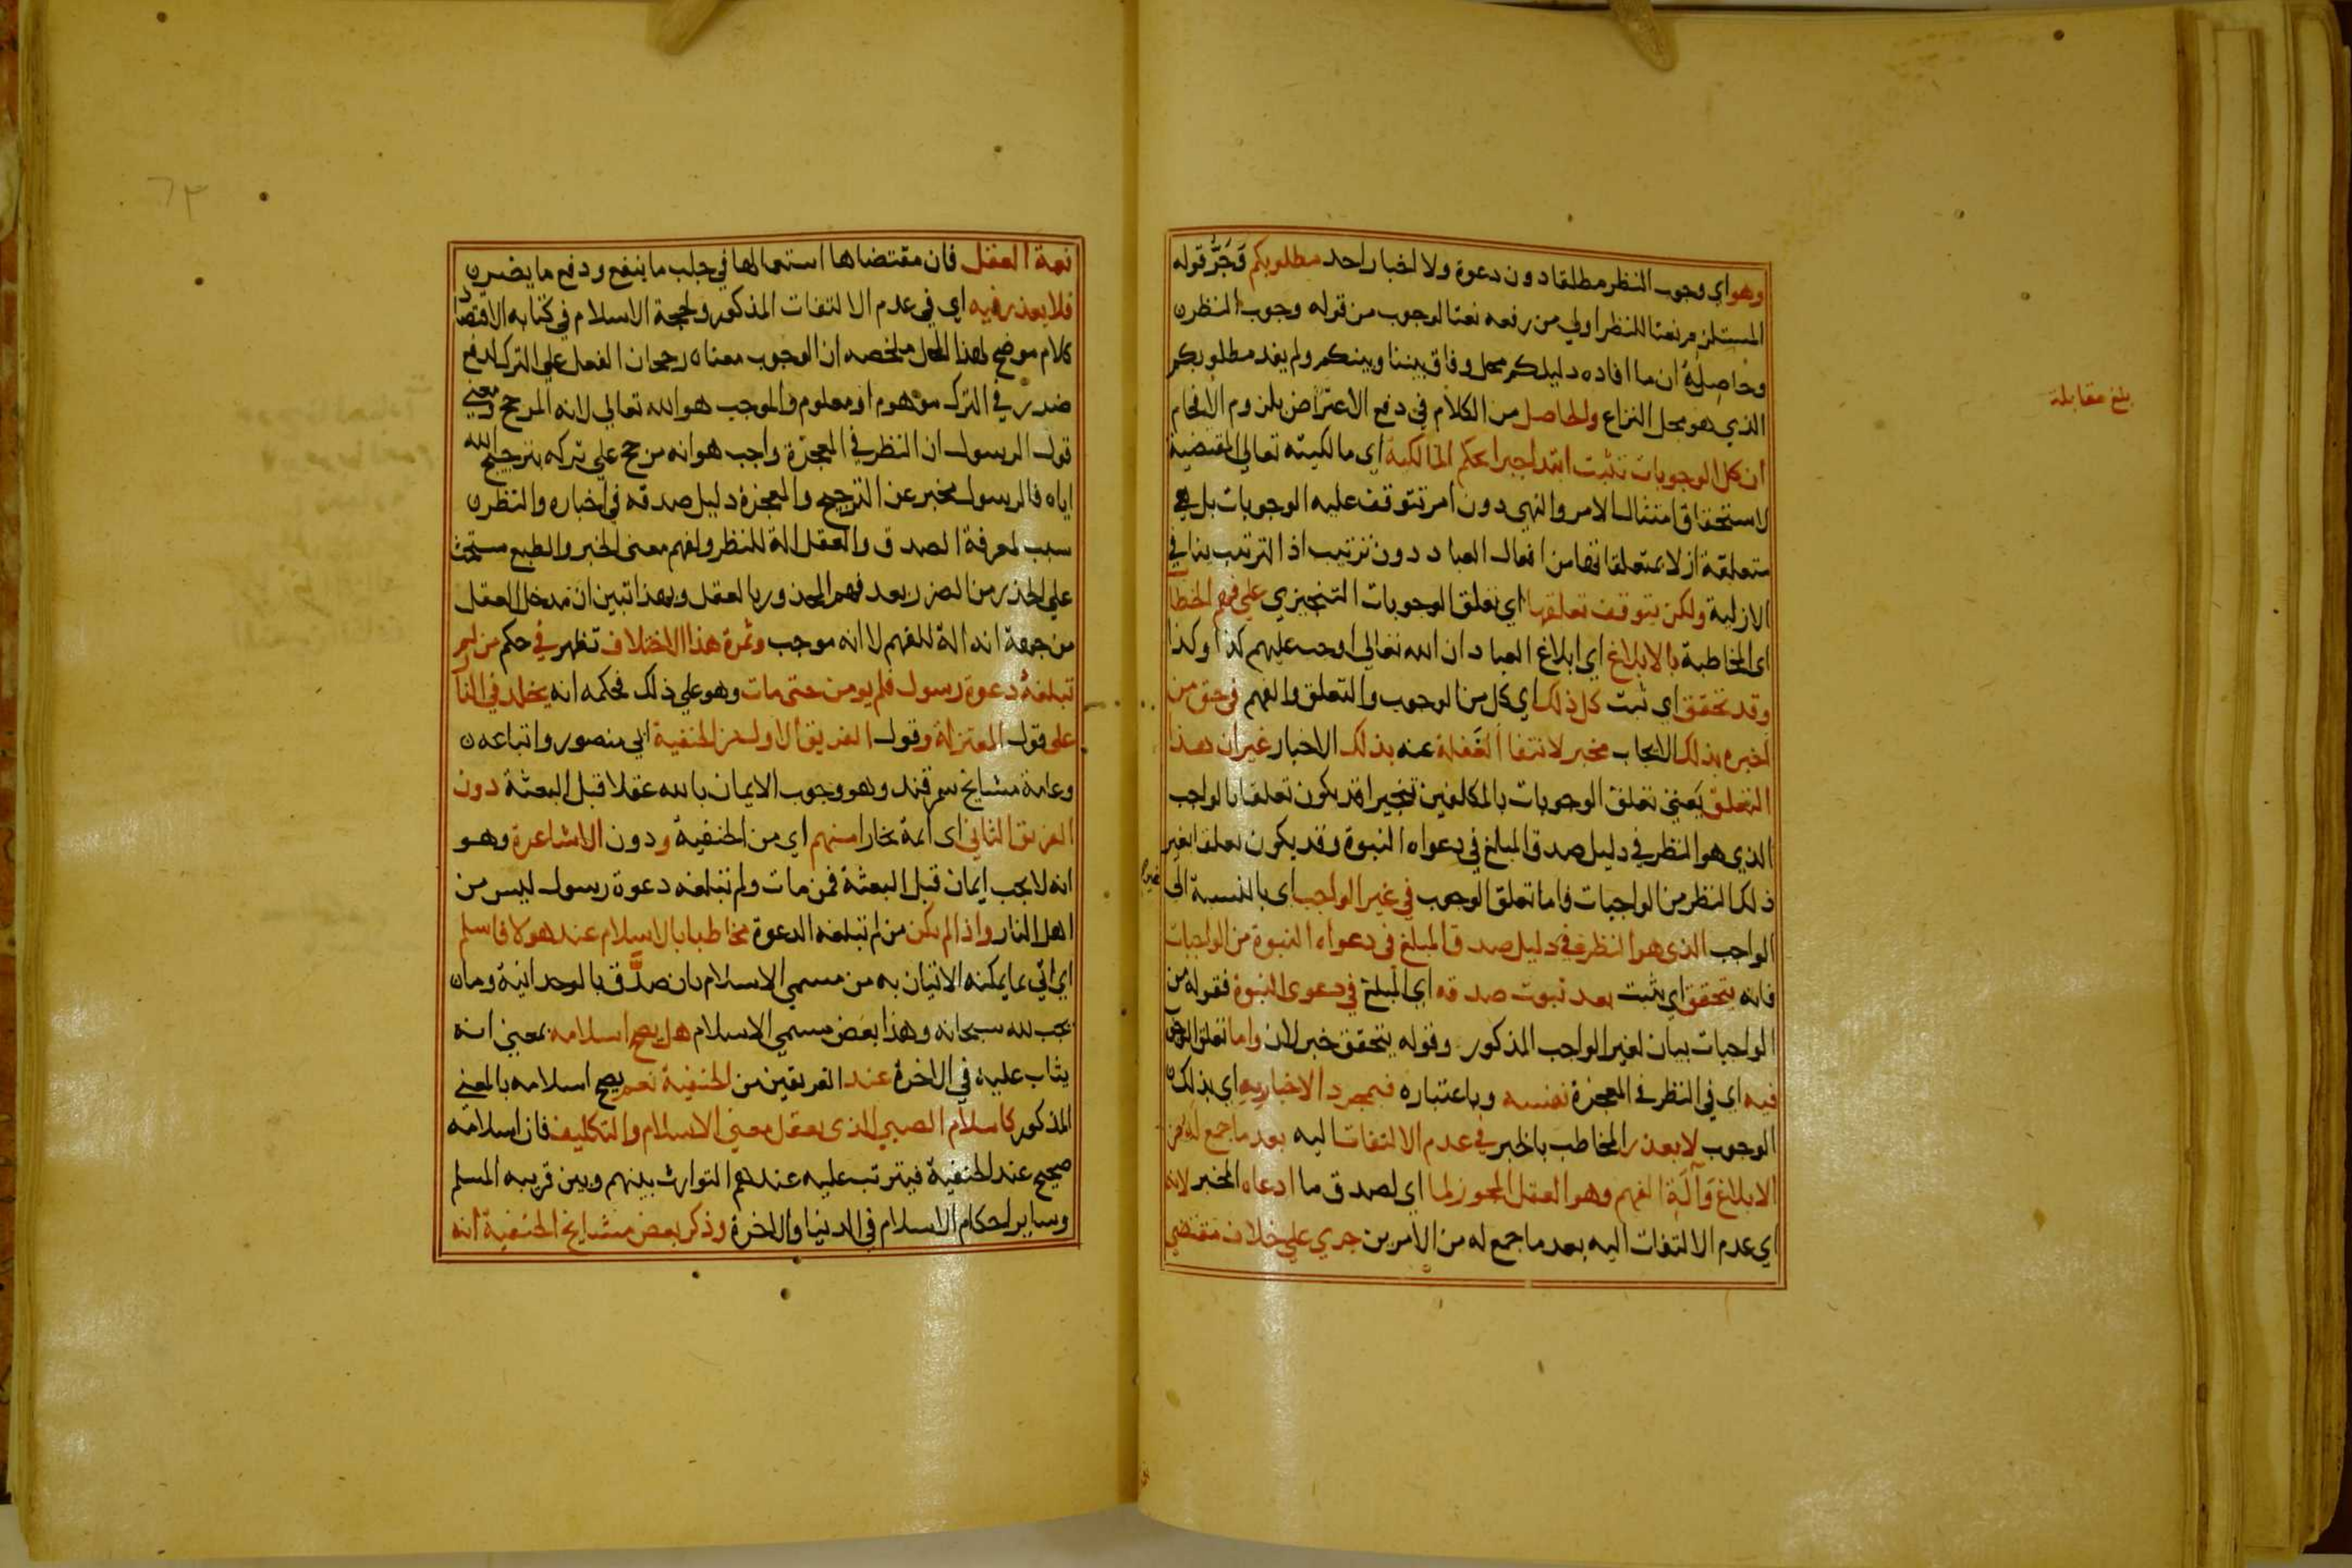 وهو اي وجوب النظر مطلقا دون دعوة ولا اخبار احد مطلوبكم فَجَرُّ قوله
المستلزم نعتا للنظر اولي من رفعه نعتا لوجوب من قوله وجوب النظر
وحاصِلهُ ان ما افاده دليلكم محل وفاق بيننا وبينكم ولم يفد مطلوبكم
الذي هو محل النزاع والحاصل من الكلام في دفع الاعتراض بلزوم الافحام
ان كل الوجوبات تثبت ابتدا جبرا بحكم المالكية اي مالكيته تعالي المقتضية
لاستحقاق امتثال الامر والنهي دون امر تتوقف عليه الوجوبات بل هي
متعلقة ازلا بمتعلقاتها من افعال العباد دون ترتيب اذ الترتيب ينافي
الازلية ولكن يتوقف تعلقها اي تعلق الوجوبات التنجيزي علي فهم الخطا
اي المخاطبة بالابلاغ اي ابلاغ العباد ان الله تعالي اوجب عليهم كذا وكذا
وقد تحقق اي ثبت كل ذلك اي كل من الوجوب والتعلق والفهم في حق من
اخبره بذلك الايجاب مخبر لانتفا الغفلة عنه بذلك الاخبار غير ان هذا
التعلق يعني تعلق الوجوبات بالمكلفين تنجيرا قد يكون تعلقا بالواجب
الذي هو النظر في دليل صدق المبلغ في دعواه النبوة وقد يكون تعلقا بغير
ذلك النظر من الواجبات فاما تعلق الوجوب في غير الواجب اي بالنسبة الي
غير
الواجب الذي هو النظر في دليل صدق المبلغ في دعواه النبوة من الواجبات
فانه يتحقق اي يثبت بعد ثبوت صدقه اي المبلغ في دعوي النبوة فقوله من
الواجبات بيان لغير الواجب المذكور وقوله يتحقق خبر لان واما تعلق الوجوب
فيه اي في النظر في المعجزة نفسه وباعتباره فبمجرد الاخبار به اي بذلك
الوجوب لا يعذر المخاطب بالخبر في عدم الالتفات اليه بعد ما جمع له من
الابلاغ وَآلَةِ الفهم وهو العقل المجوز لما اي لصدق ما ادعاه المخبر لانه
اي عدم الالتفات اليه بعد ما جمع له من الامرين جري علي خلاف مقتضي
بلغ مقابلة
٦٣
نعمة العقل فان مقتضاها استعمالها في جلب ما ينفع ودفع ما يضر
فلا يعذر فيه اي في عدم الالتفات المذكور ولحجة الاسلام في كتابه الاقتصاد
كلام موضح لهذا المحل ملخصه ان الوجوب معناه رجحان الفعل علي الترك لدفع
ضرر في الترك موهوم او معلوم والموجب هو الله تعالي لانه المرجح ومعني
قول الرسول ان النظر في المعجزة واجب هو انه مرجح علي تركه بترجيح الله
اياه فالرسول مخبر عن الترجيح والمعجزة دليل صدقه في اخباره والنظر
سبب لمعرفة الصدق والعقل الة للنظر ولفهم معنى الخبر والطبع مستحث
علي الحذر من الضرر بعد فهم المحذور بالعقل وبهذا تبين ان مدخل العقل
من جهة انه الة للفهم لا انه موجب وثمرة هذا الاختلاف تظهر في حكم من لم
تبلغهُ دعوة رسول فلم يومن حتى مات وهو علي ذلك فحكمه انه يخلد في النار
علي قول المعتزلة وقول الفريق الاول من الحنفية ابي منصور واتباعه
وعامة مشايخ سمرقند وهو وجوب الايمان بالله عقلا قبل البعثة دون
الفريق الثاني اي ائمة بخارا منهم اي من الحنفية ودون الاشاعرة وهو
انه لا يجب ايمان قبل البعثة فمن مات ولم تبلغه دعوة رسول ليس من
اهل النار واذا لم يكن من لم تبلغه الدعوة مخاطبا بالاسلام عند هولا فاسلم
اي اتي بما يمكنه الاتيان به من مسمي الاسلام بان صدَّق بالوحدانية وما
يجب لله سبحانه وهذا بعض مسمي الاسلام هل يصح اسلامه بمعني انه
يثاب عليه في الاخرة عند الفريقين من الحنفية نعم يصح اسلامه بالمعني
المذكور كاسلام الصبي الذي يعقل معني الاسلام والتكليف فان اسلامه
صحيح عند الحنفية فيترتب عليه عندهم التوارث بينهم وبين قريبه المسلم
وساير احكام الاسلام في الدنيا والاخرة وذكر بعض مشايخ الحنفية انه